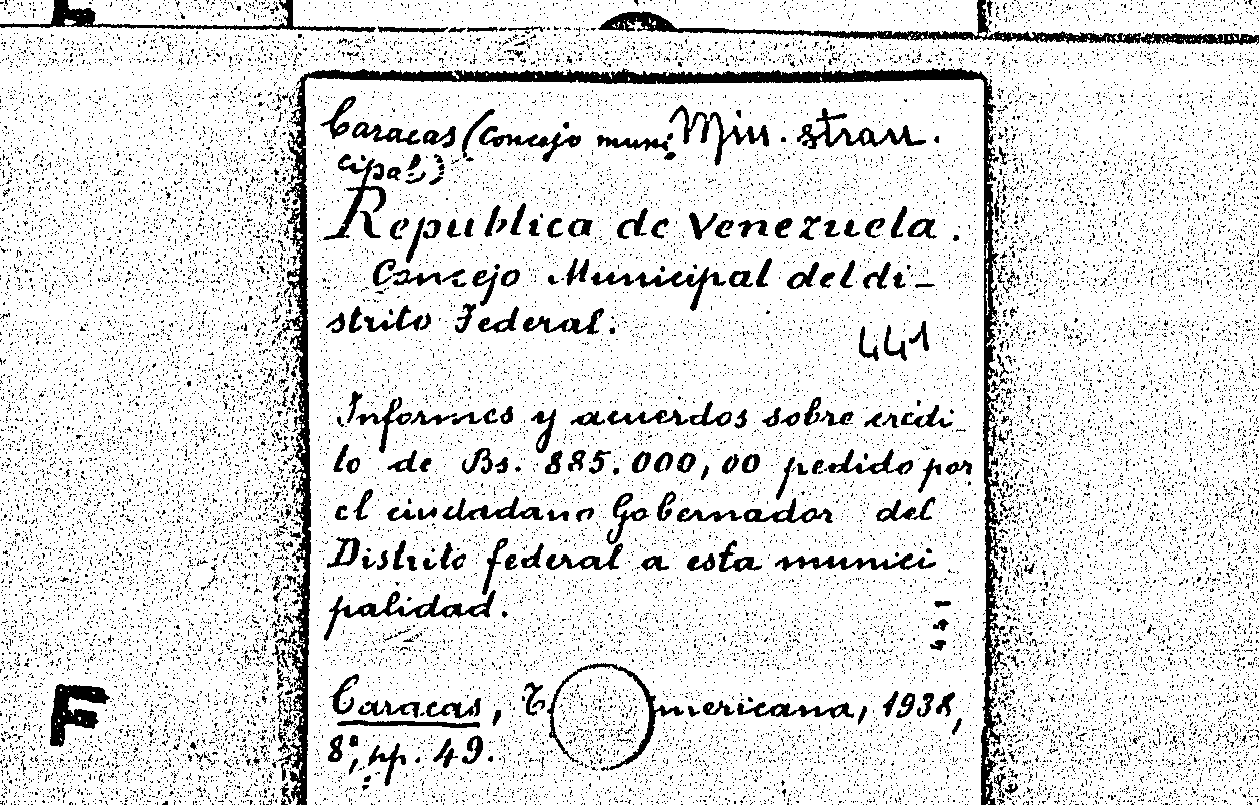 Caracas (Concejo muni Min. stran.
cipal)
Republica de Venezuela.
Concejo Municipal del di-
strito Federal.
441
Informes y acuerdos sobre crédi
to de Bs. 885.000,00 pedido por
el ciudadano Gobernador del
Distrito federal a esta munici
palidad.
441
Caracas, T. mericana, 1938,
8º, pp. 49.
F